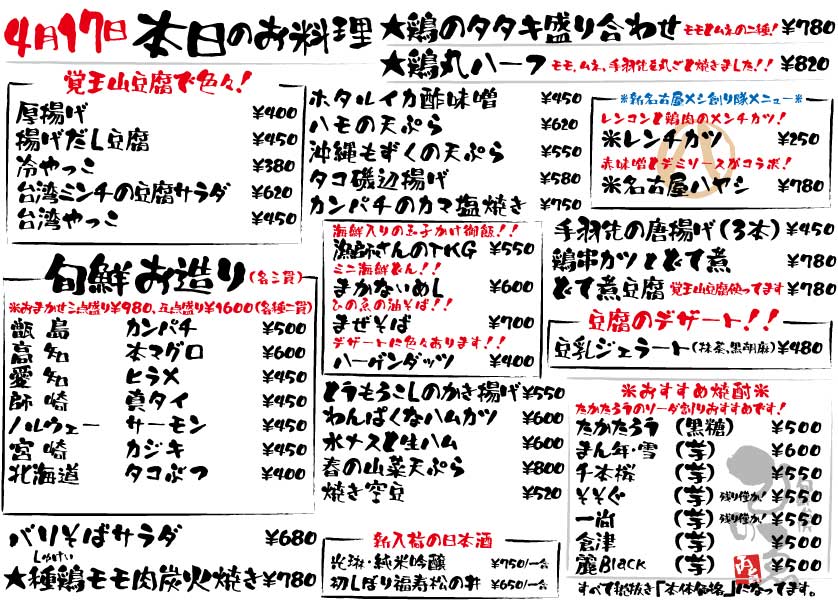 4月17日 本日のお料理
★鶏のタタキ盛り合わせ モモとムネの二種! ¥780
★鶏丸ハーフ モモ、ムネ、手羽先を丸ごと焼きました!! ¥820
覚王山豆腐で色々!
厚揚げ ¥400
揚げだし豆腐 ¥450
冷やっこ ¥380
台湾ミンチの豆腐サラダ ¥620
台湾やっこ ¥450
旬鮮お造り(各二貫)
※おまかせ三点盛り¥980、五点盛り¥1600(各種二貫)
甑島 カンパチ ¥500
高知 本マグロ ¥600
愛知 ヒラメ ¥450
師崎 真タイ ¥450
ノルウェー サーモン ¥450
宮崎 カジキ ¥450
北海道 タコぶつ ¥400
バリそばサラダ ¥680
しゅけい
★種鶏モモ肉炭火焼き ¥780
ホタルイカ酢味噌 ¥450
ハモの天ぷら ¥620
沖縄もずくの天ぷら ¥550
タコ磯辺揚げ ¥580
カンパチのカマ塩焼き ¥750
海鮮入りの玉子かけ御飯!!
漁師さんのTKG ¥550
ミニ海鮮どん!!
まかないめし ¥600
ひの魚の油そば!!
まぜそば ¥700
デザートに色々あります!!
ハーゲンダッツ ¥400
とうもろこしのかき揚げ ¥550
わんぱくなハムカツ ¥600
水ナスと生ハム ¥600
春の山菜天ぷら ¥800
焼き空豆 ¥520
新入荷の日本酒
光琳・純米吟醸 ¥750/一合
初しぼり福寿松の井 ¥650/一合
※新名古屋メシ創り隊メニュー※
レンコンと鶏肉のメンチカツ!
※レンチカツ ¥250
赤味噌とデミソースがコラボ!
※名古屋ハヤシ ¥780
手羽先の唐揚げ(3本) ¥450
鶏串カツとどて煮 ¥780
どて煮豆腐 覚王山豆腐使ってます ¥780
豆腐のデザート!!
豆乳ジェラート(抹茶、黒胡麻) ¥480
※おすすめ焼酎※
たかたろうのソーダ割りおすすめです!
たかたろう (黒糖) ¥500
まん年・雪 (芋) ¥600
千本桜 (芋) ¥550
そそぐ (芋) 残り僅か! ¥550
一尚 (芋) 残り僅か! ¥550
倉津 (芋) ¥500
麗Black (芋) ¥500
すべて税抜き「本体価格」になってます。